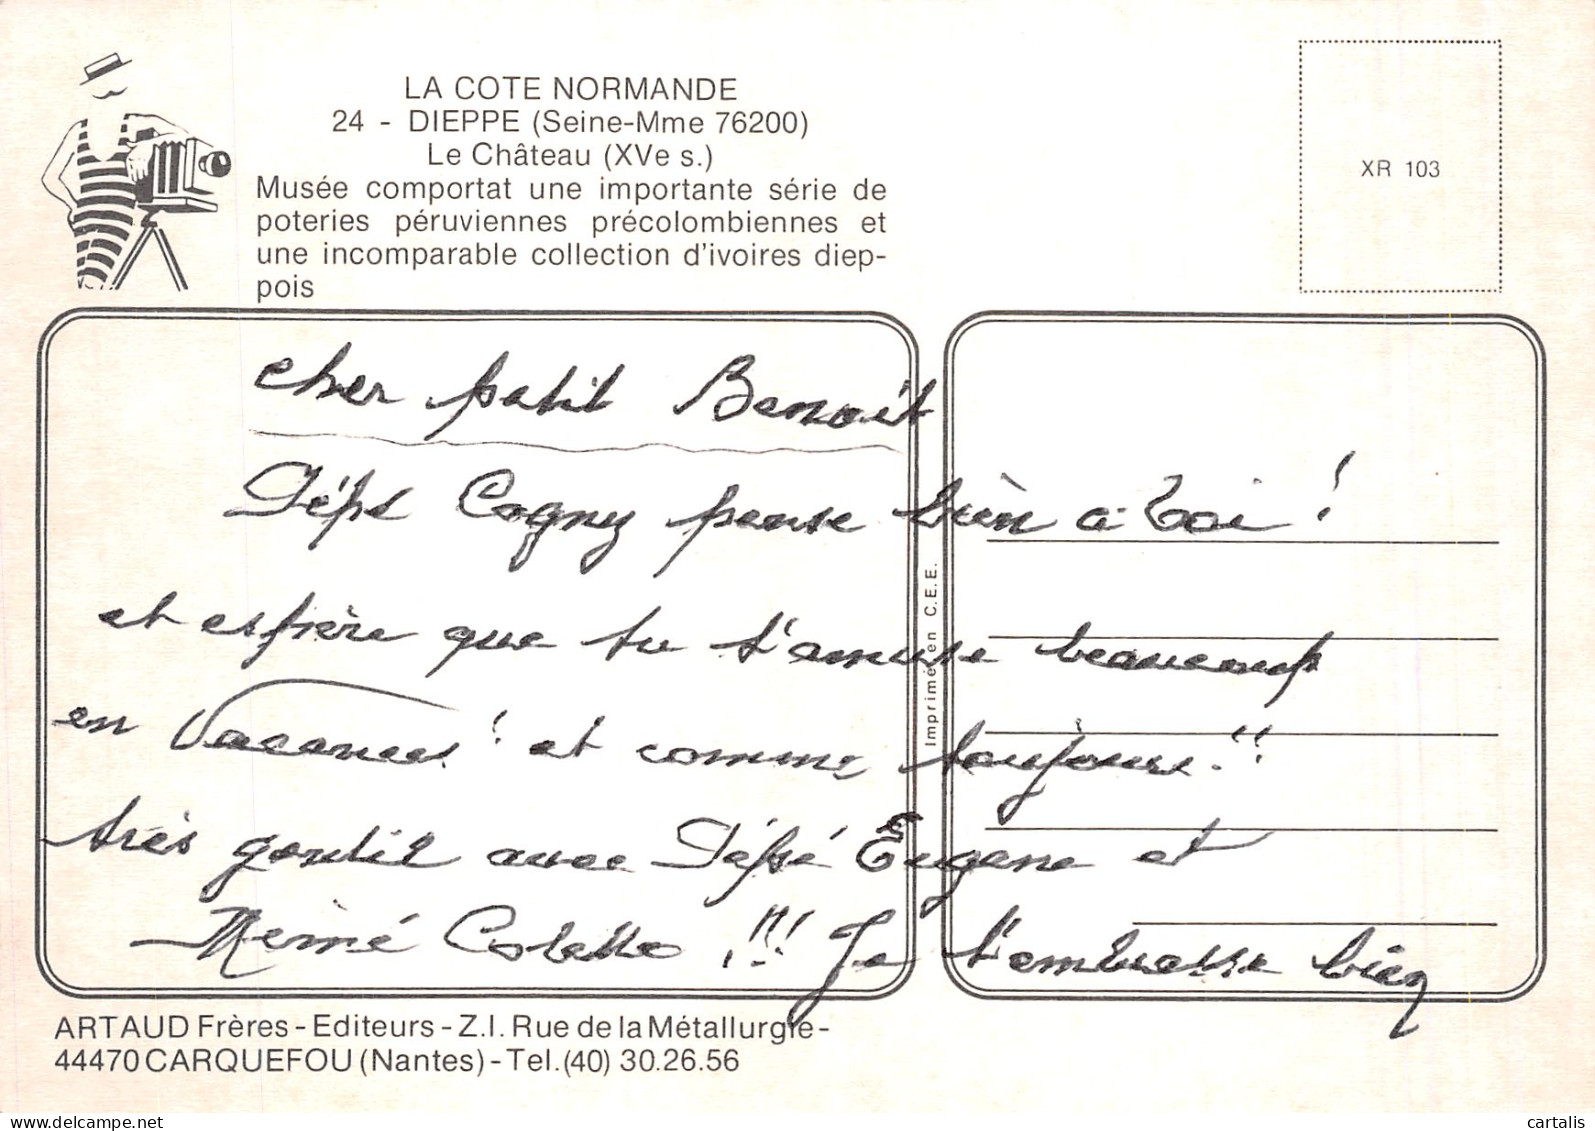 LA COTE NORMANDE
24 - DIEPPE (Seine-Mme 76200)
Le Château (XVe s.)
Musée comportat une importante série de
poteries péruviennes précolombiennes et
une incomparable collection d'ivoires diep-
pois
XR 103
cher petit Benoit
Cogny pense bien à toi !
et espère que tu t'amuse beaucoup
en Vacances ! et comme toujours !!
très gentil avec Pépé Eugene et
Mémé Colette !!! Je t'embrasse bien
Imprimé en C.E.E.
ARTAUD Frères - Editeurs - Z.I. Rue de la Métallurgie -
44470 CARQUEFOU (Nantes) - Tel. (40) 30.26.56
www.delcampe.net
cartalis